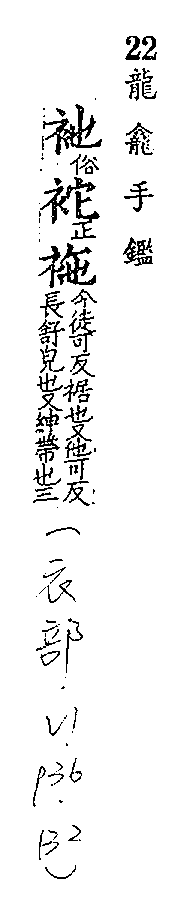 22龍龕手鑑
袘俗袉正袘今徒可反裾也又他可反
長舒皃也又紳帶也三
(衣部.VI.136.132)